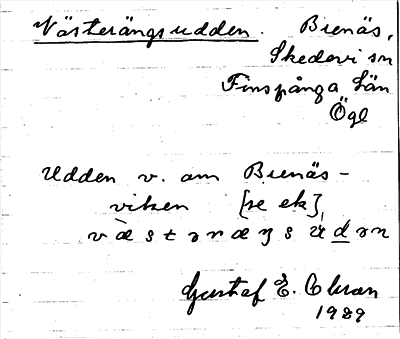 Västerängsudden. Brenäs,
Skedevi sn
Finspånga län
Ögl
Udden v. om Brenäs-
viken [se ek],
væstəræŋsùdən
Gustaf E.
1989